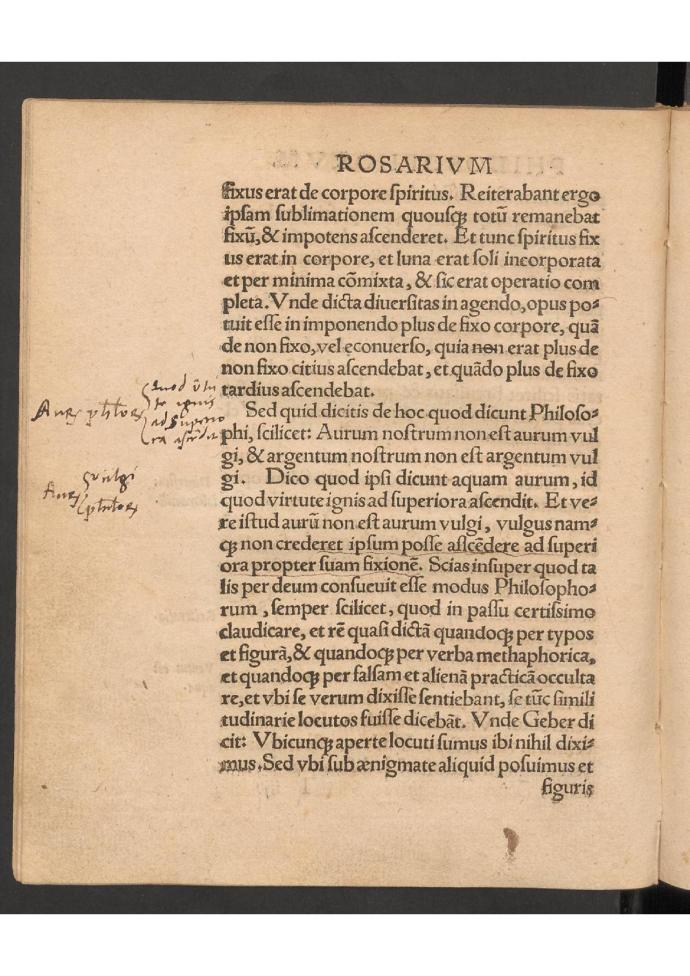 ROSARIVM
fixus erat de corpore ſpiritus. Reiterabant ergo
ipſam ſublimationem quouſqꝫ totũ remanebat
fixũ, & impotens aſcenderet. Et tunc ſpiritus fix
us erat in corpore, et luna erat ſoli incorporata
et per minima cõmixta, & ſic erat operatio com
pleta. Vnde dicta diuerſitas in agendo, opus po⸗
tuit eſſe in imponendo plus de fixo corpore, quã
de non fixo, vel econuerſo, quia non erat plus de
non fixo citius aſcendebat, et quãdo plus de fixo
tardius aſcendebat.
quod virtu
te ignis
ad superio
ra ascendit
Aurum
Sed quid dicitis de hoc quod dicunt Philoſo⸗
phi, ſcilicet: Aurum noſtrum non eſt aurum vul
gi, & argentum noſtrum non eſt argentum vul
gi. Dico quod ipſi dicunt aquam aurum, id
quod virtute ignis ad ſuperiora aſcendit. Et ve⸗
re iſtud aurũ non eſt aurum vulgi, vulgus nam⸗
vulgi
qꝫ non crederet ipſum poſſe aſſcẽdere ad ſuperi
ora propter ſuam fixionẽ. Scias inſuper quod ta
lis per deum conſueuit eſſe modus Philoſopho⸗
rum, ſemper ſcilicet, quod in paſſu certiſſimo
claudicare, et rẽ quaſi dictã quandoqꝫ per typos
et figurã, & quandoqꝫ per verba methaphorica,
et quandoqꝫ per falſam et alienã practicã occulta
re, et vbi ſe verum dixiſſe ſentiebant, ſe tũc ſimili
tudinarie locutos fuiſſe dicebãt. Vnde Geber di
cit: Vbicunqꝫ aperte locuti ſumus ibi nihil dixi⸗
mus. Sed vbi ſub ænigmate aliquid poſuimus et
figuris